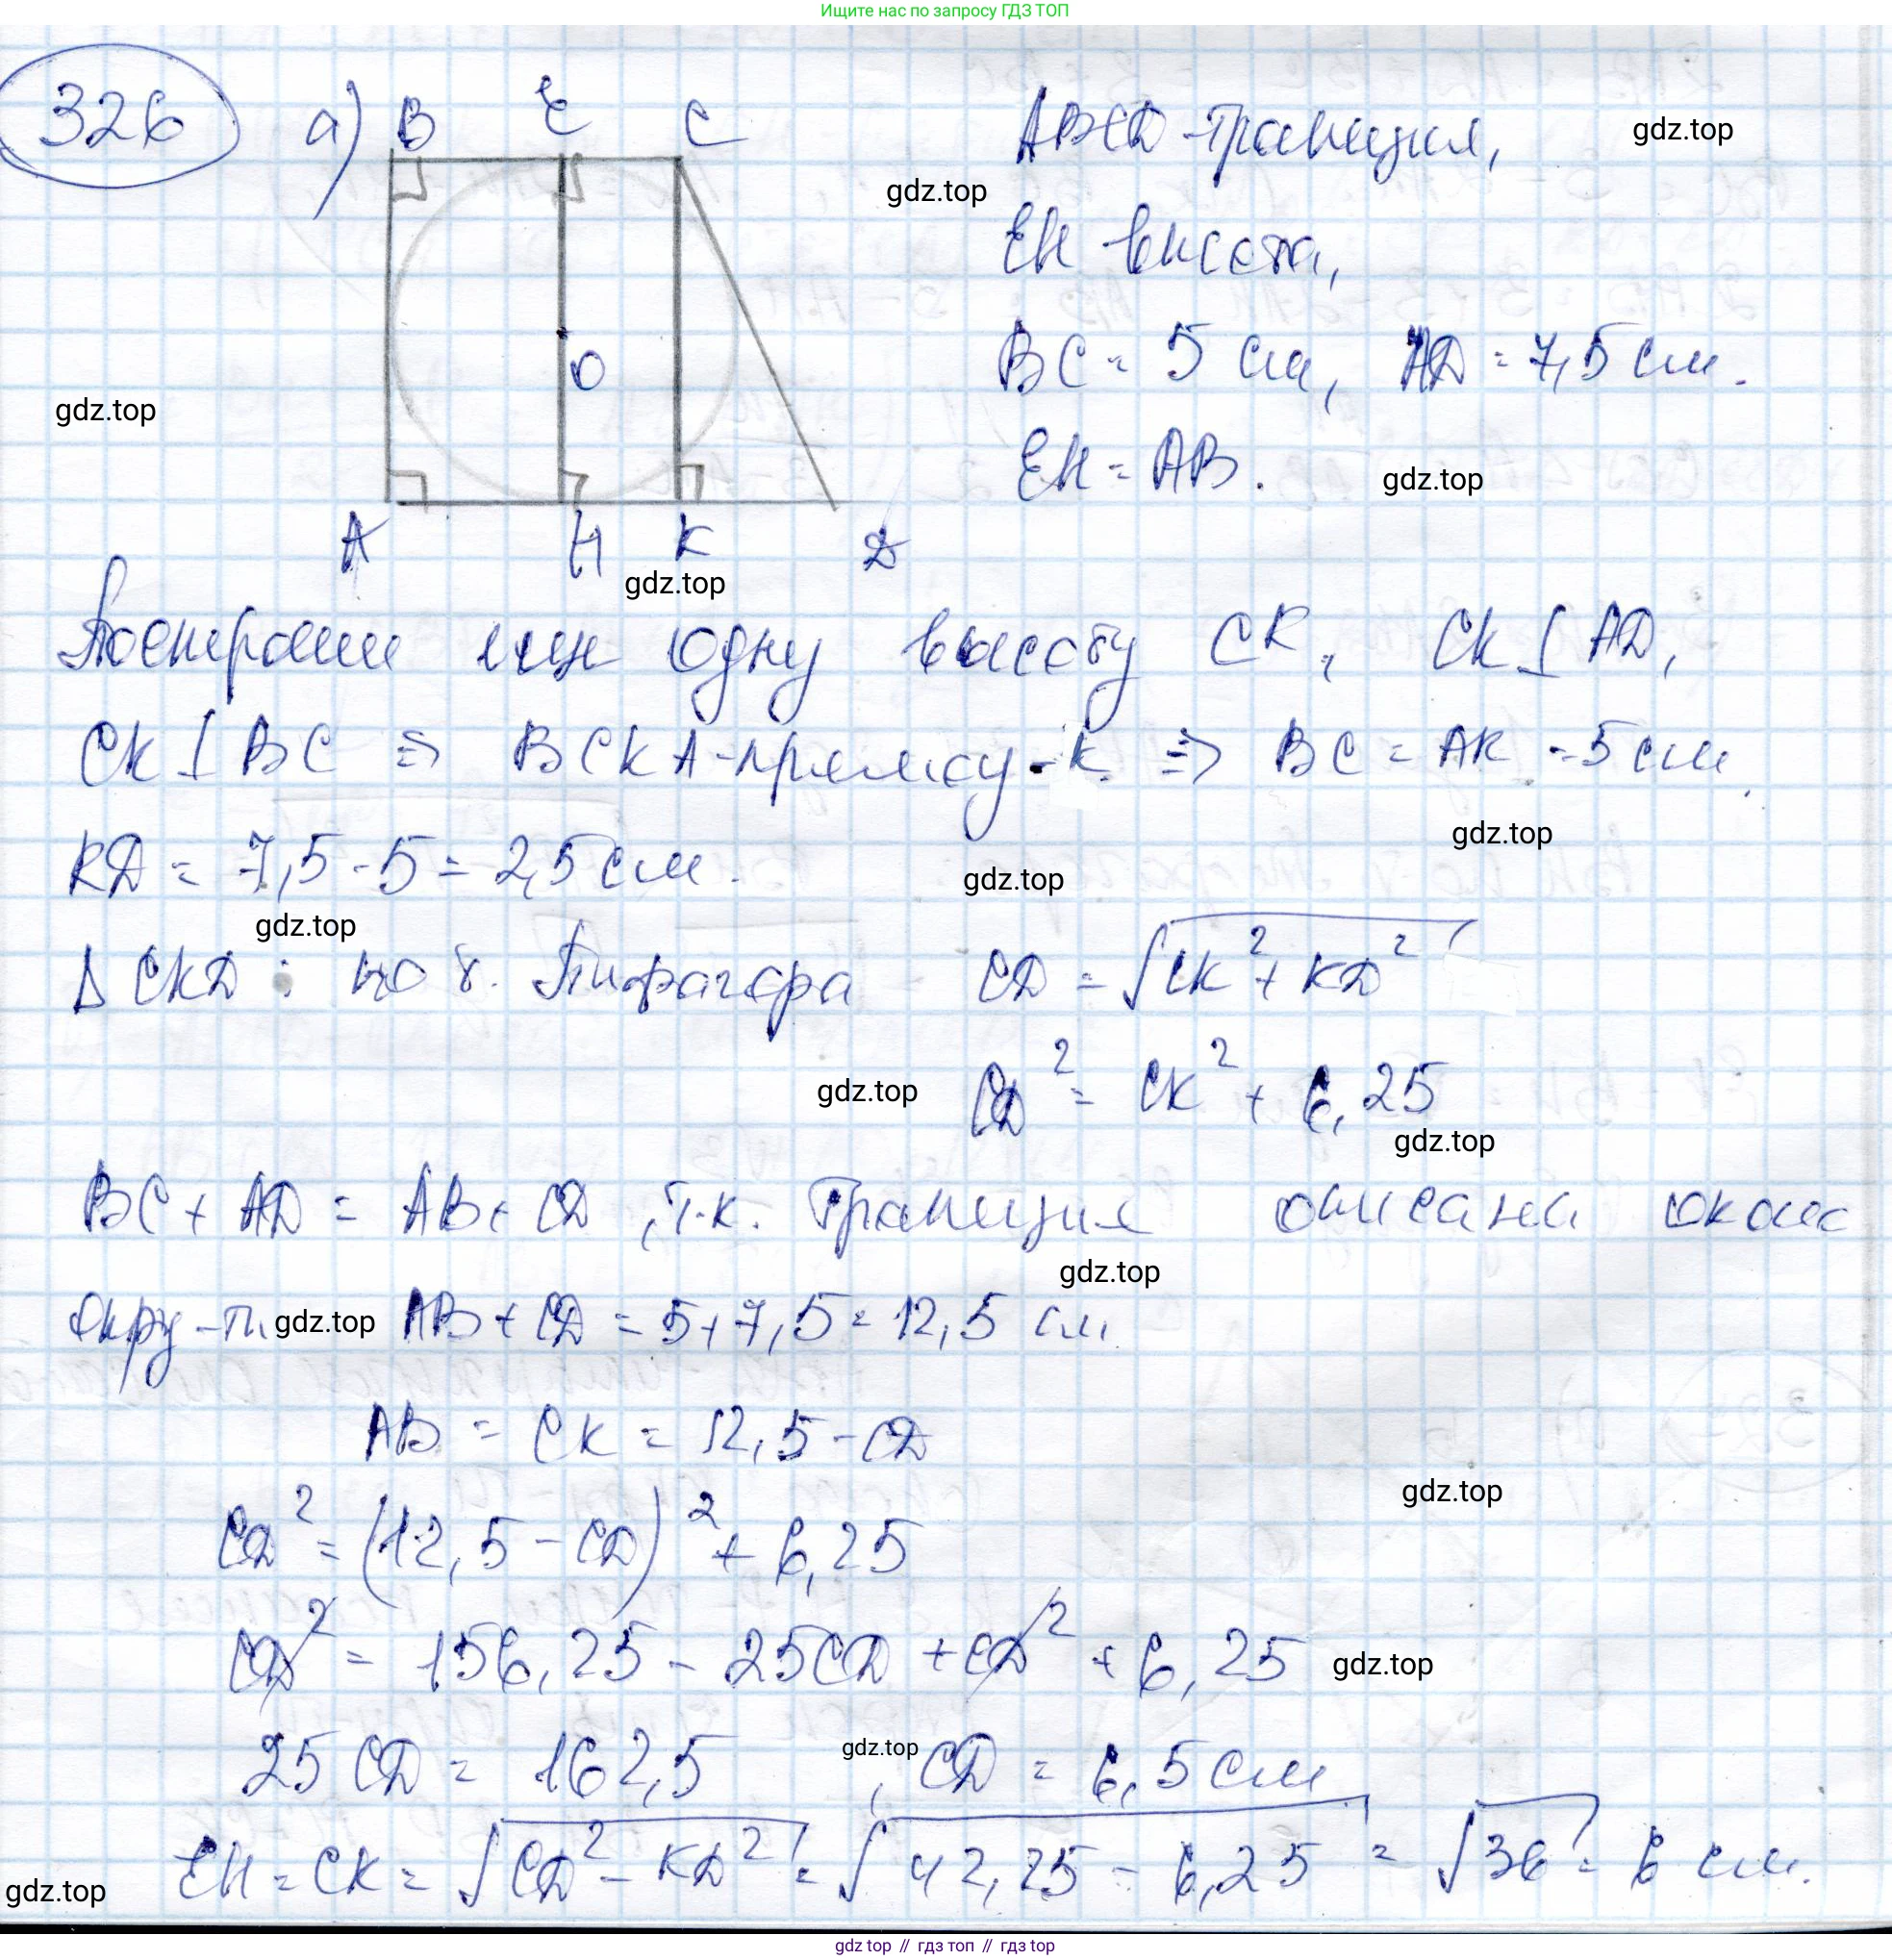 Ищите нас по запросу ГДЗ ТОП
326 а) B E C
ABCD - трапеция,
gdz.top
gdz.top
EH высота,
BC = 5 см, AD = 7,5 см.
O
gdz.top
EH = AB.
gdz.top
A H K D
gdz.top
Построим еще одну высоту CK, CK ⊥ AD,
CK ⊥ BC ⇒ BCKA - прямоу-к ⇒ BC = AK = 5 см.
gdz.top
KD = 7,5 - 5 = 2,5 см.
gdz.top
gdz.top
Δ CKD: по т. Пифагора CD = √CK² + KD²
gdz.top
CD² = CK² + 6,25
gdz.top
BC + AD = AB + CD, т.к. трапеция описана около
gdz.top
окру-ти gdz.top AB + CD = 5 + 7,5 = 12,5 см.
AB = CK = 12,5 - CD
gdz.top
CD² = (12,5 - CD)² + 6,25
CD² = 156,25 - 25CD + CD² + 6,25
gdz.top
25 CD = 162,5 gdz.top, CD = 6,5 см
EH = CK = √CD² - KD² = √42,25 - 6,25 = √36 = 6 см.
gdz.top
gdz top // гдз топ // гдз top